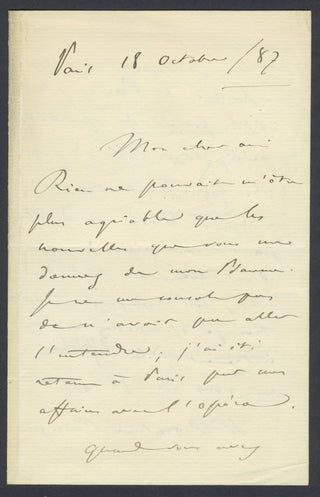 Paris 18 Octobre /87
Mon cher ami
Rien ne pouvait m'être
plus agréable que les
nouvelles que vous me
donnez de mon
Je ne me console pas
de n'avoir pu aller
l'entendre; j'ai été
retenu à Paris par mes
affaires avec l'opéra.
quand vous avez